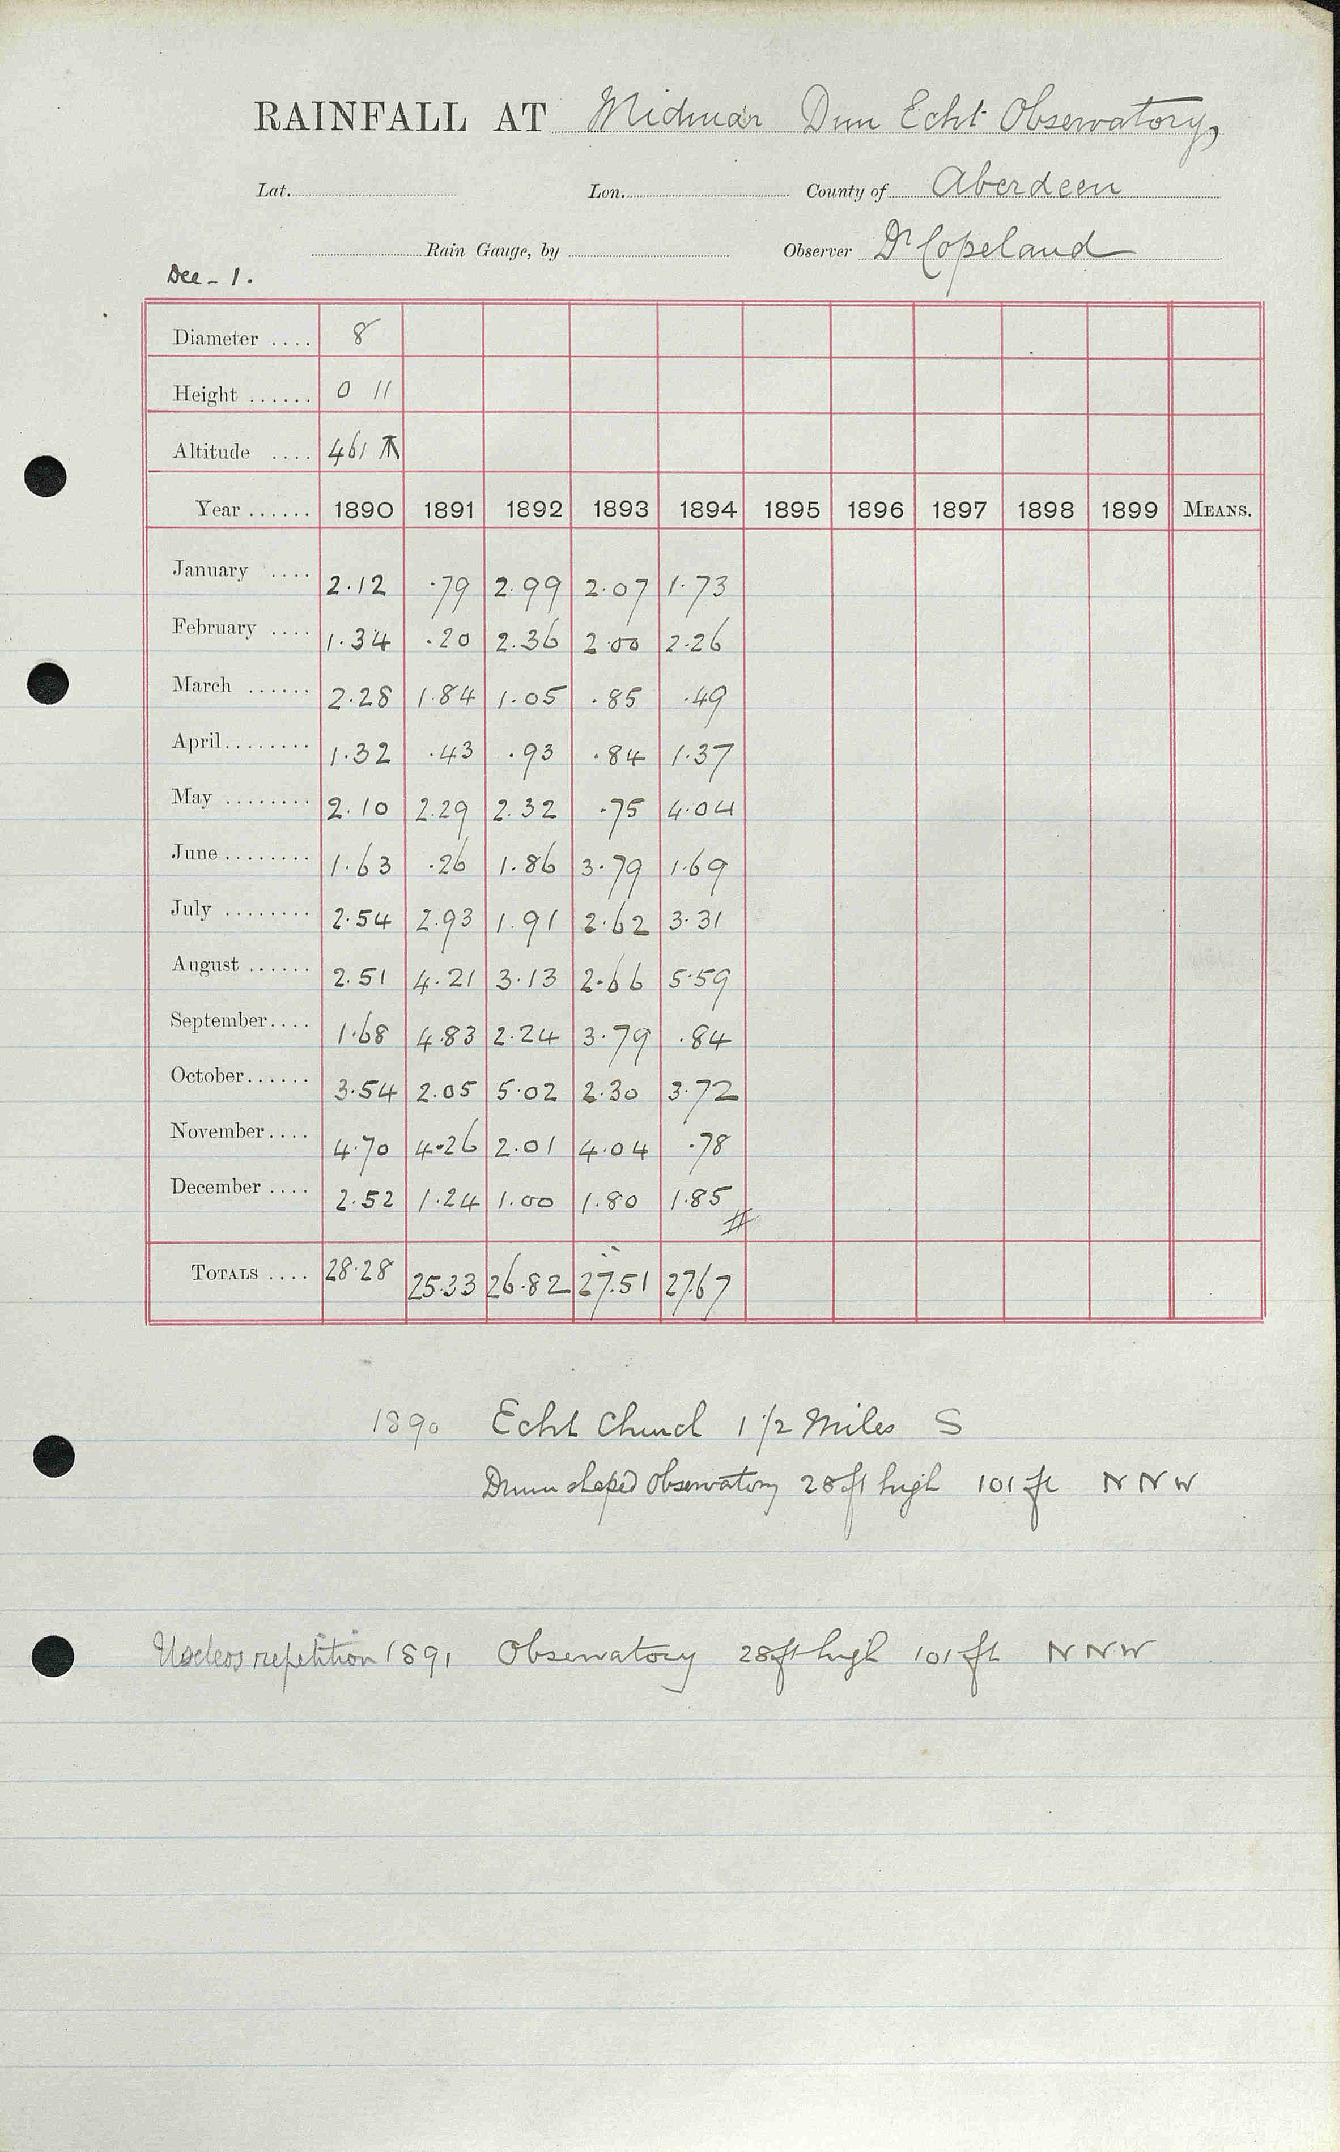 RAINFALL AT Midmar Dun Echt Observatory,
Lat. Lon. County of Aberdeen
Rain Gauge, by Observer Dr Copeland
Dee - 1.
Diameter .... 8
Height ...... 0 11
Altitude .... 461
Year ...... 1890 1891 1892 1893 1894 1895 1896 1897 1898 1899 MEANS.
January .... 2.12 .79 2.99 2.07 1.73
February .... 1.34 .20 2.36 2.00 2.26
March ...... 2.28 1.84 1.05 .85 .49
April........ 1.32 .43 .93 .84 1.37
May ........ 2.10 2.29 2.32 .75 4.04
June ........ 1.63 .26 1.86 3.79 1.69
July ........ 2.54 2.93 1.91 2.62 3.31
August ...... 2.51 4.21 3.13 2.66 5.59
September.... 1.68 4.83 2.24 3.79 .84
October...... 3.54 2.05 5.02 2.30 3.72
November.... 4.70 4.26 2.01 4.04 .78
December .... 2.52 1.24 1.00 1.80 1.85
TOTALS .... 28.28 25.33 26.82 27.51 27.67
1890 Echt Church 1 1/2 Miles S
Drum shaped Observatory 28 ft high 101 ft N N W
Useless repetition 1891 Observatory 28 ft high 101 ft N N W